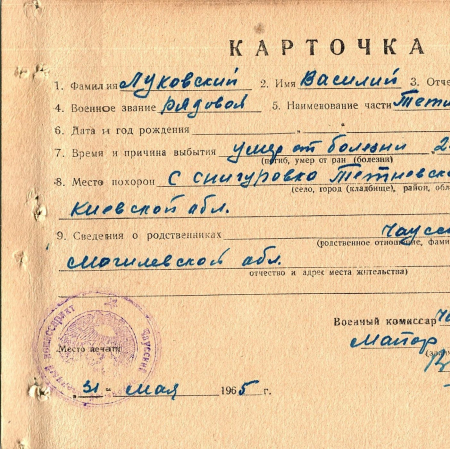 КАРТОЧКА
1. Фамилия Луковский 2. Имя Василий 3. Отче
4. Военное звание рядовой 5. Наименование части Тети
6. Дата и год рождения
7. Время и причина выбытия умер от болезни 2
(погиб, умер от ран (болезни)
8. Место похорон с Снигуровка Тетиевско
(село, город (кладбище), район, обл
Киевской обл.
9. Сведения о родственниках Чаусс
(родственное отношение, фами
Могилевской обл.
отчество и адрес места жительства)
Военный комиссар
Майор
Место печати
"31" мая 1965 г.